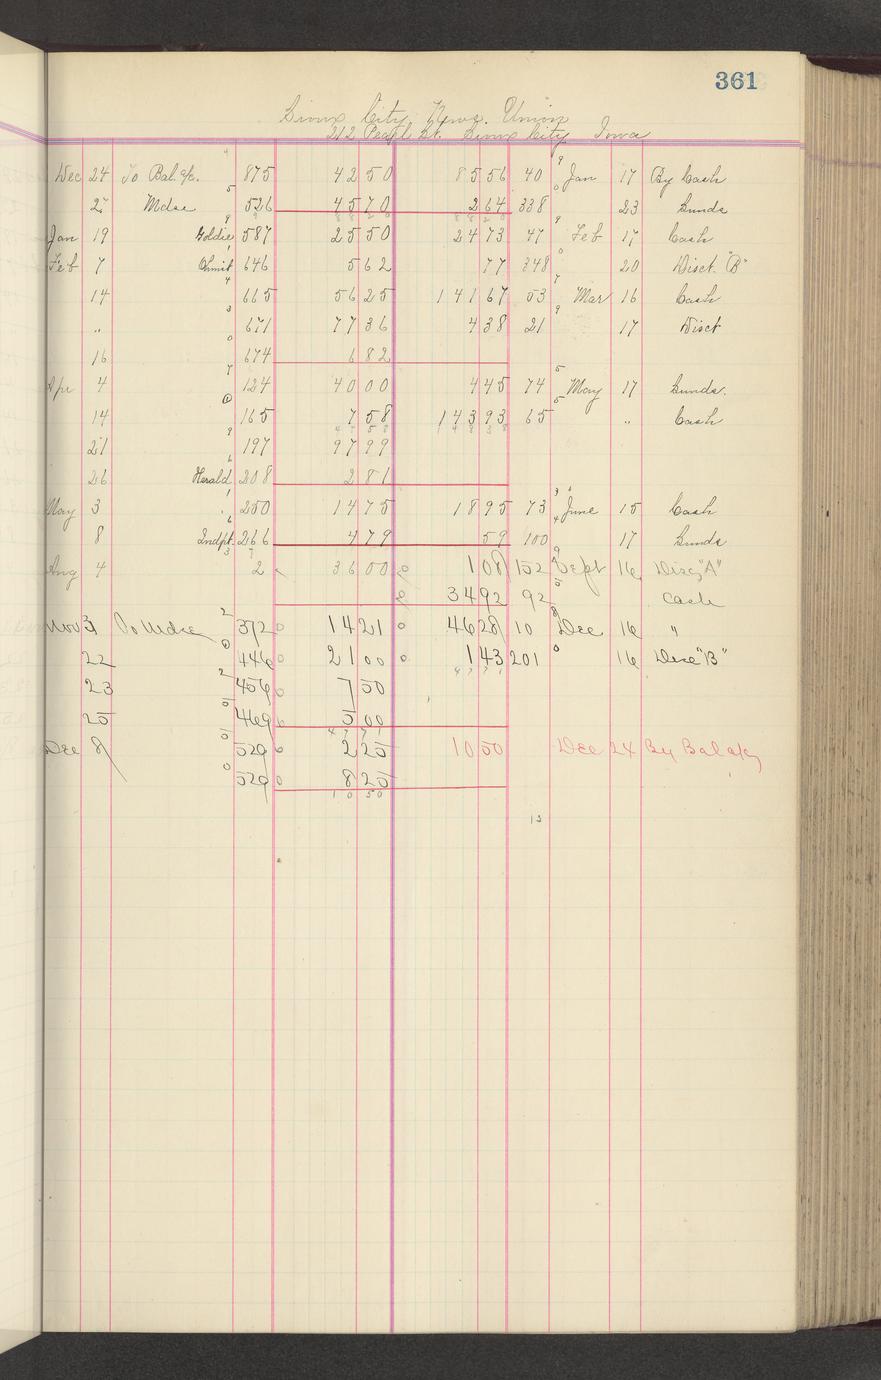 361
Sioux City News. Union
212 Pearl St. Sioux City Iowa
Dec 24 To Bal. a/c. 875 42 50 85 56 40 Jan 17 By Cash
27 Mdse 526 45 70 2 64 338 23 Sunds
Jan 19 Goldie 587 25 50 24 73 47 Feb 17 Cash
Feb 7 646 5 62 77 348 20 Disct "B"
14 665 56 25 141 67 53 Mar 16 Cash
" 671 77 36 4 38 21 17 Disct
16 674 6 82
Apr 4 124 40 00 4 45 74 May 17 Sunds.
14 165 7 58 143 93 65 " Cash
21 197 97 99
26 Herald 208 2 81
May 3 250 14 75 18 95 73 June 15 Cash
8 Indpt. 266 4 79 59 100 17 Sunds
Aug 4 2 36 00 1 08 152 Sept 16 Disc "A"
34 92 92 Cash
Nov 3 To Mdse 372 14 21 46 28 10 Dec 16 "
22 446 21 00 1 43 201 16 Disc "B"
23 456 7 50
25 469 5 00
4 7 7 1
Dec 8 529 2 25 10 50 Dec 24 By Bal a/c
529 8 25
1 0 5 0